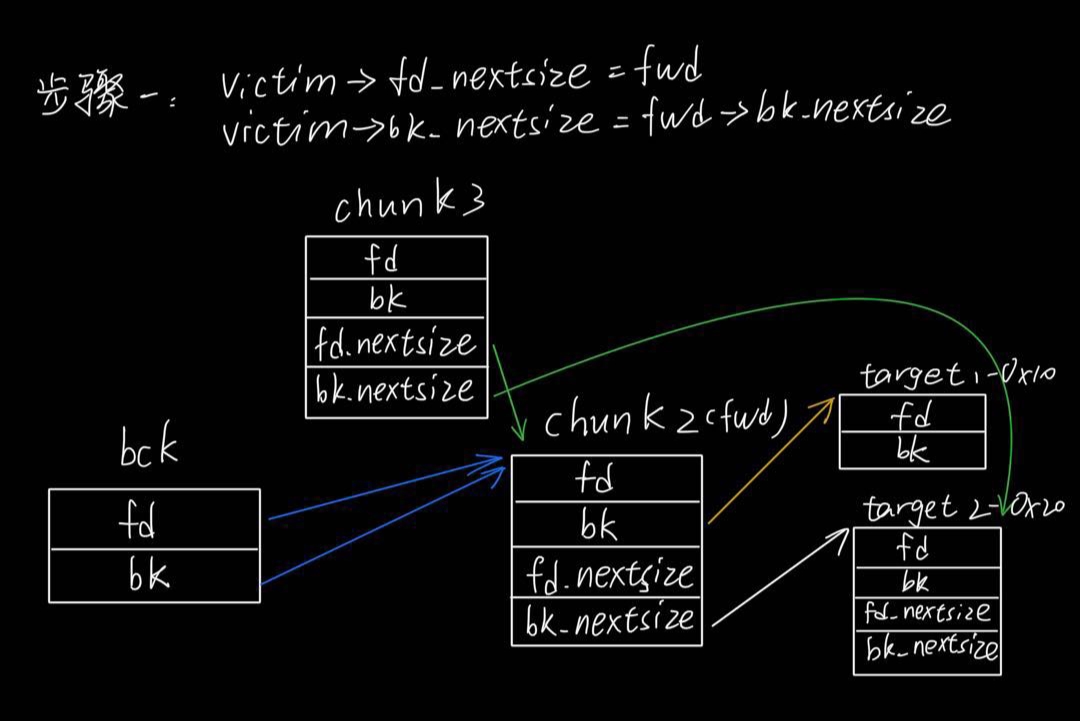 步骤一: victim→fd_nextsize = fwd
victim→bk_nextsize = fwd→bk_nextsize
chunk3
fd
bk
fd.nextsize
bk.nextsize
bck
fd
bk
chunk2(fwd)
fd
bk
fd.nextsize
bk_nextsize
target1-0x10
fd
bk
target2-0x20
fd
bk
fd_nextsize
bk_nextsize